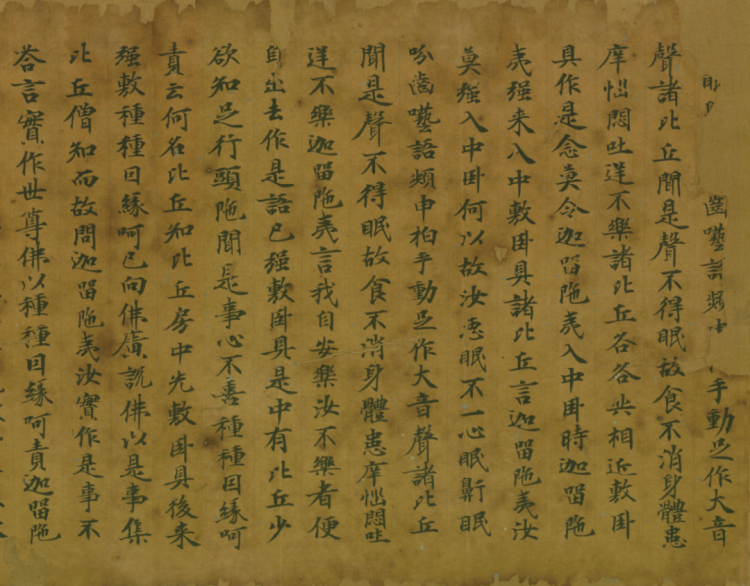 齒囈語頻申 手動足作大音
聲諸比丘聞是聲不得眠故食不消身體患
摩悩悶吐逆不樂諸比丘各各共相近敷卧
具作是念莫令迦留陁夷入中卧時迦留陁
夷强来入中敷卧具諸比丘言迦留陁夷汝
莫强入中卧何以故汝惡眠不一心眠鼾眠
吤齒囈語頻申拍手動足作大音聲諸比丘
聞是聲不得眠故食不消身體患摩悩悶吐
逆不樂迦留陁夷言我自安樂汝不樂者便
自出去作是語已强敷卧具是中有比丘少
欲知足行頭陁聞是事心不喜種種因緣呵
責云何名比丘知比丘房中先敷卧具後来
强敷種種因緣呵已向佛廣說佛以是事集
比丘僧知而故問迦留陁夷汝實作是事不
荅言實作世尊佛以種種因緣呵責迦留陁